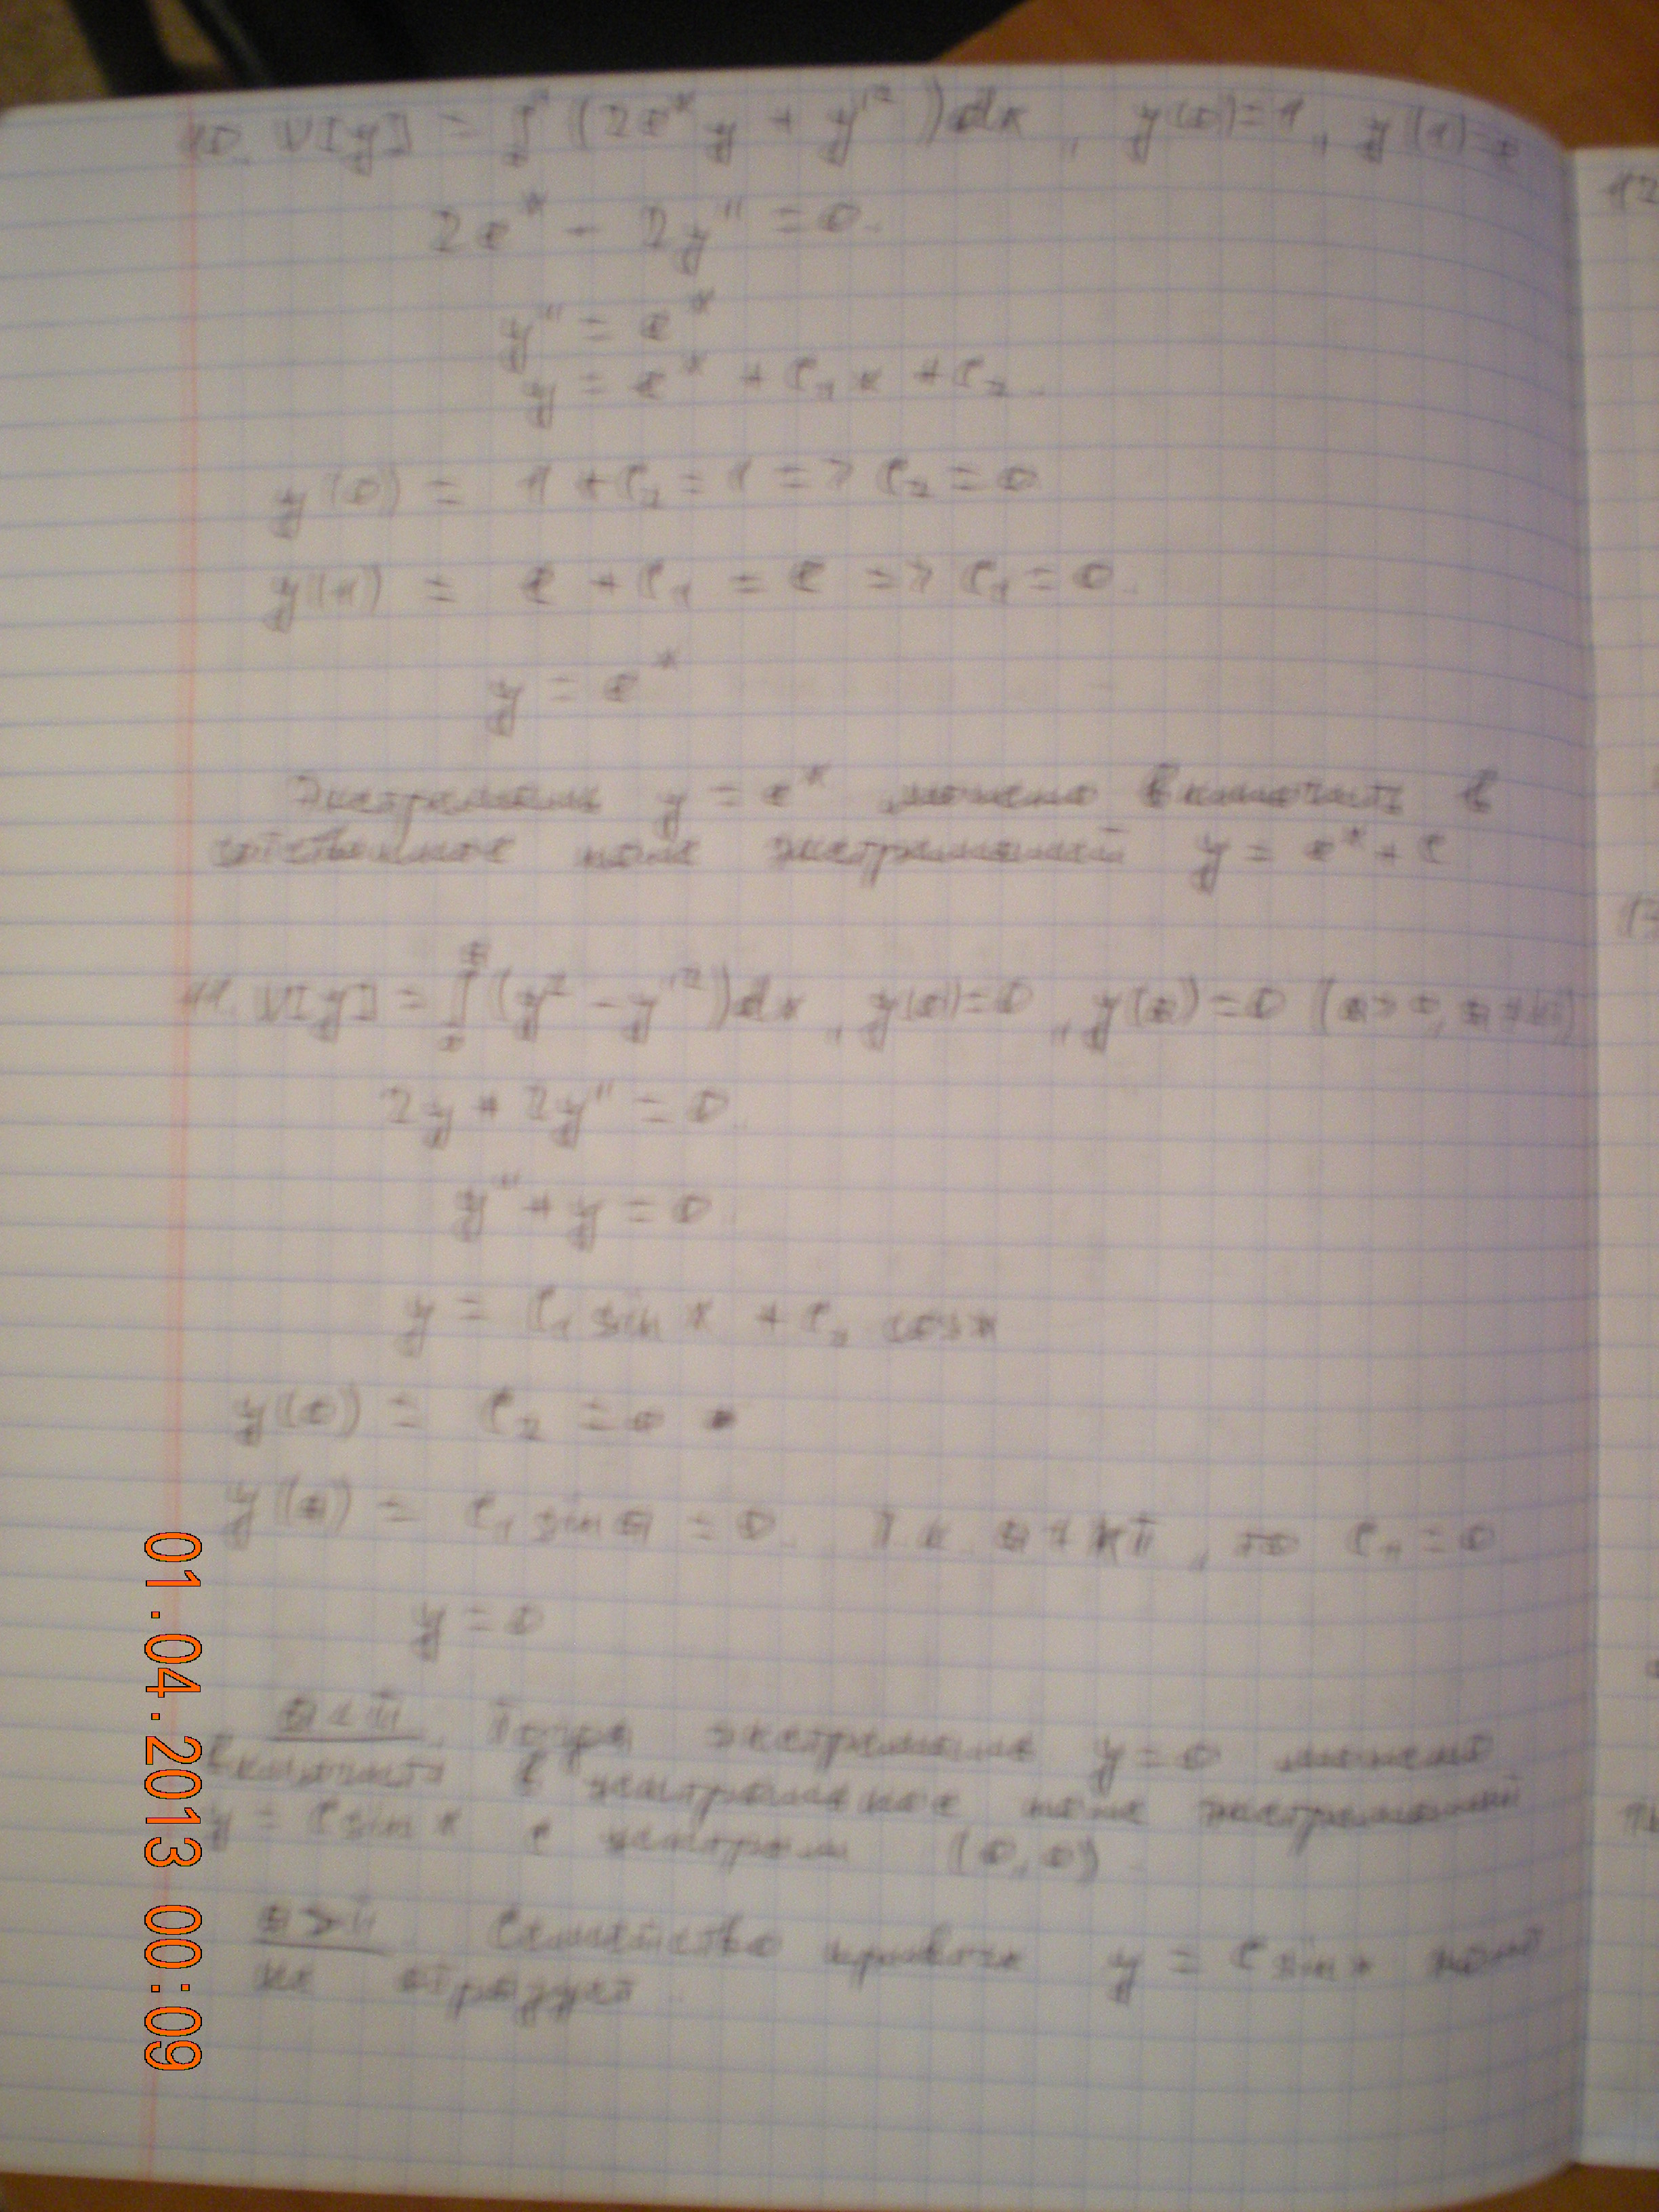 10. V[y] = ∫ (2e^x y + y'^2) dx, y(0)=1, y(1)=e
2e^x - 2y'' = 0.
y'' = e^x
y = e^x + C₁x + C₂.
y(0) = 1 + C₂ = 1 => C₂ = 0
y(1) = e + C₁ = e => C₁ = 0.
y = e^x
Экстремаль y = e^x можно включить в
собственное поле экстремалей y = e^x + C
11. V[y] = ∫₀^a (y² - y'^2) dx, y(0)=0, y(a)=0 (a>0, a≠kπ)
2y + 2y'' = 0.
y'' + y = 0.
y = C₁ sin x + C₂ cos x
y(0) = C₂ = 0
y(a) = C₁ sin a = 0. Т.к. a ≠ kπ, то C₁ = 0
y = 0
a < π. Тогда экстремаль y = 0 можно
включить в центральное поле экстремалей
y = C sin x с центром (0,0).
a > π Семейство кривых y = C sin x поля
не образует.
12
13
01.04.2013 00:09